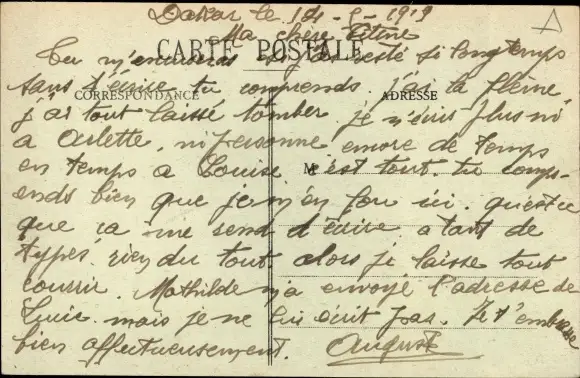 Dakar le 14 - - 1919
Ma chère Titine
CARTE POSTALE
Tu m'excuseras si je resté si longtemps
sans t'écrire tu comprends j'ai la flème
CORRESPONDANCE
ADRESSE
j'ai tout laissé tomber je n'écris plus ni
a Arlette, ni personne encore de temps
en temps a Louise M c'est tout. tu comp-
ends bien que je m'en fou ici. quest ce
que ça me send d'écrire a tant de
types rien du tout. alors je laisse tout
courrir. Mathilde m'a envoyé l'adresse de
Lucie mais je ne lui écrit pas. Je t'embrasse
bien affectueusement. August